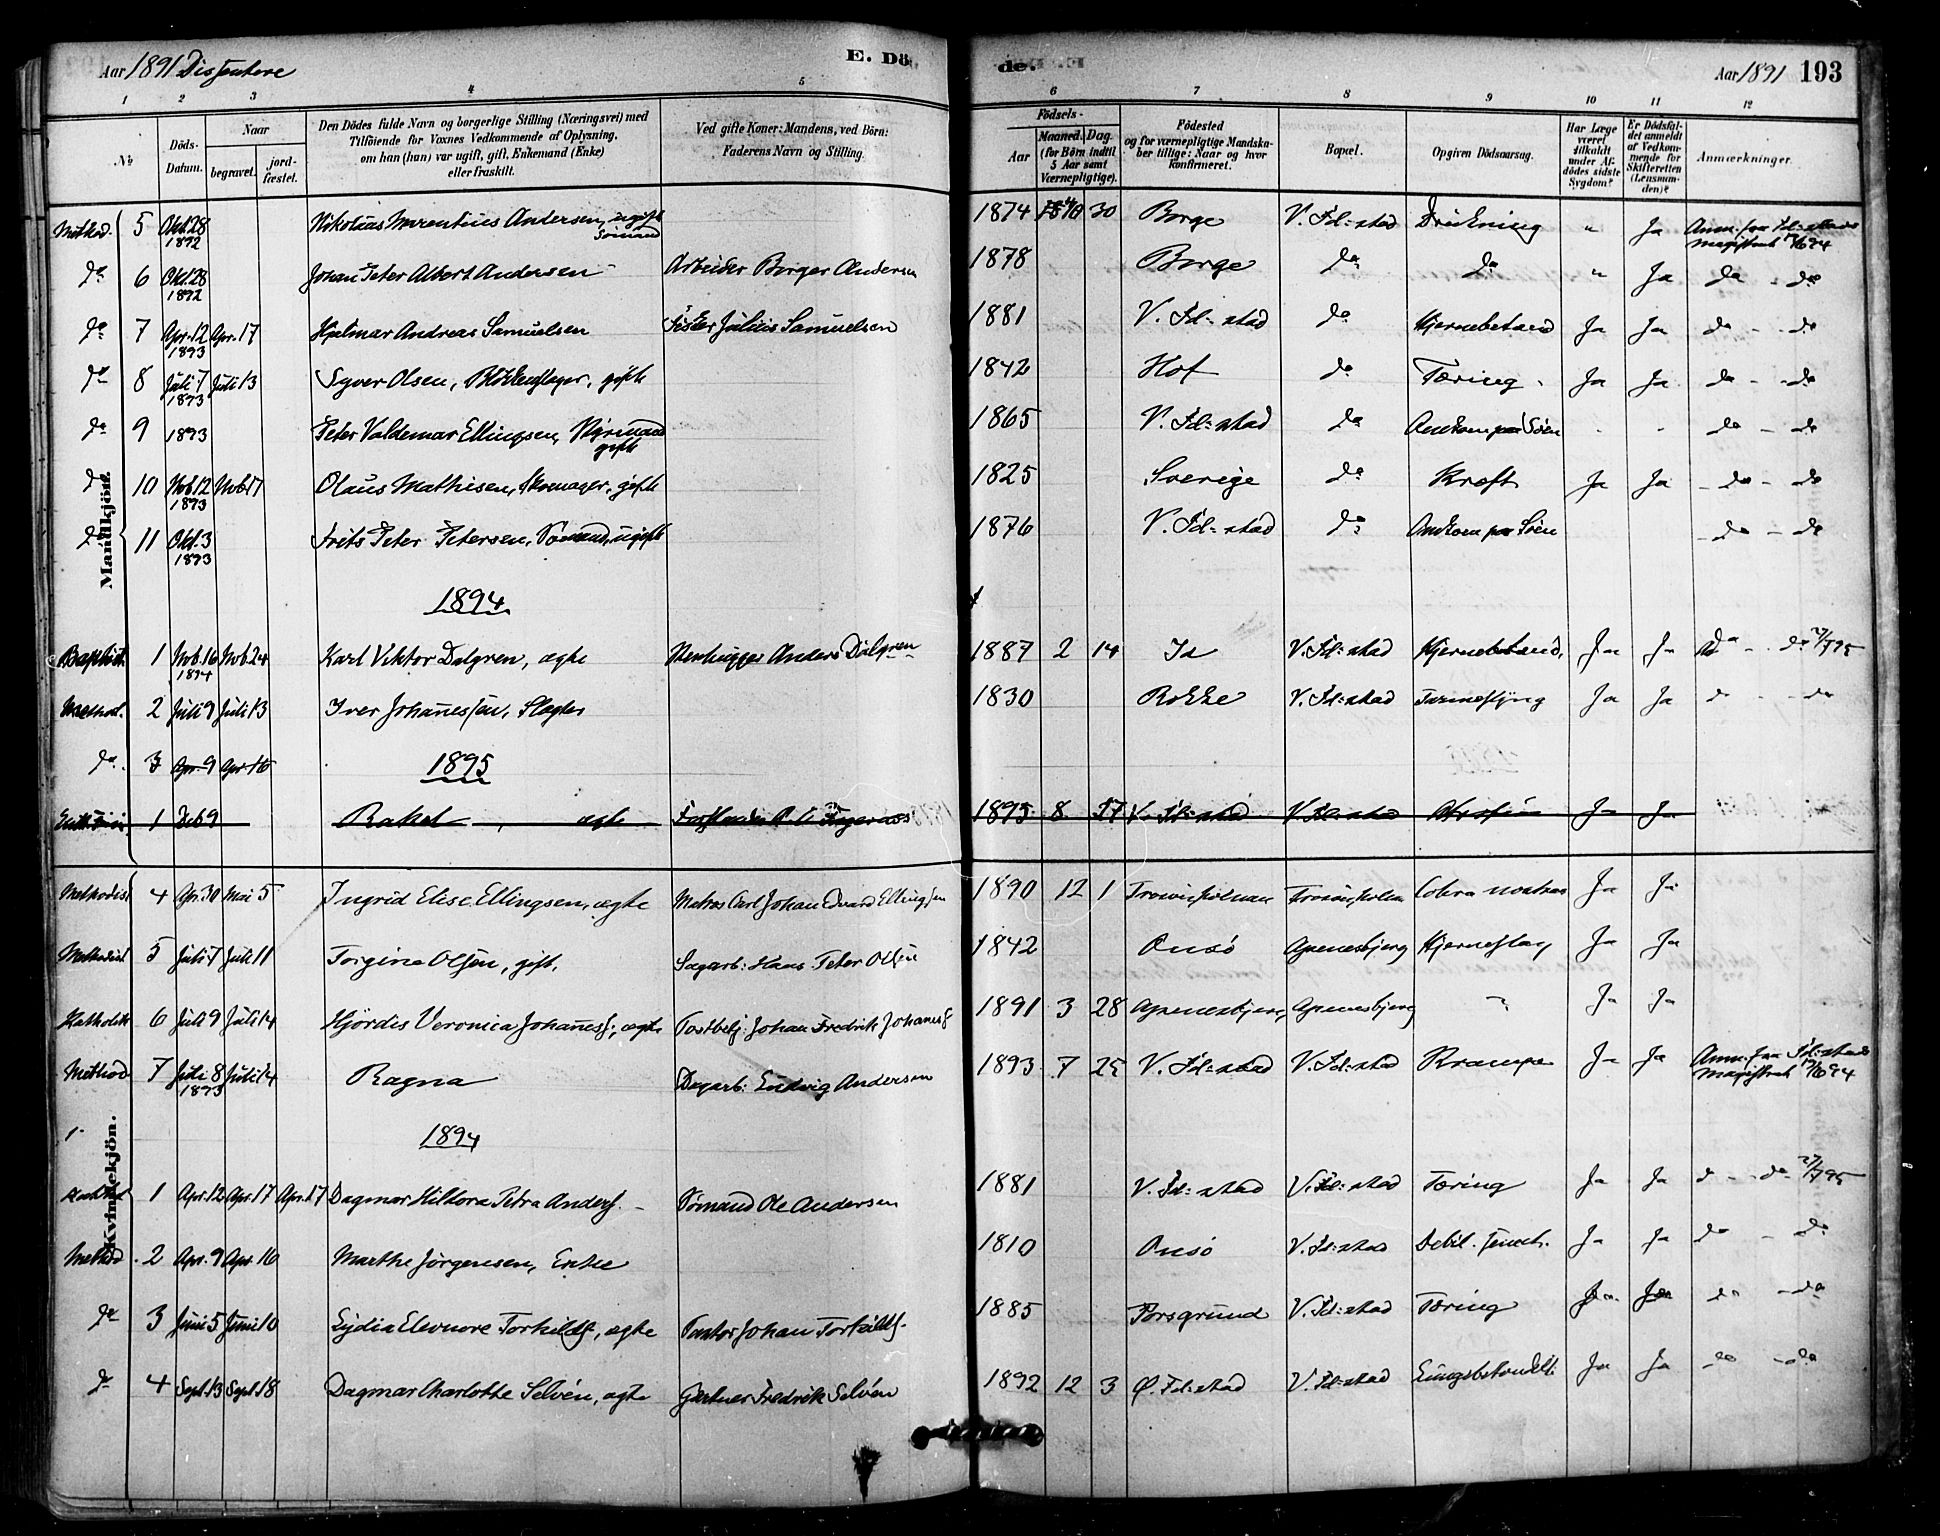 Aar 1891 Dissentere E. Döde. Aar 1891 193
1 2 3 4 5 6 7 8 9 10 11 12
No Döds-Datum. Naar begravet. jordfæstet. Den Dödes fulde Navn og borgerlige Stilling (Næringsvei) med Tilföiende for Voxnes Vedkommende af Oplysning, om han (hun) var ugift, gift, Enkemand (Enke) eller fraskilt. Ved gifte Koner: Mandens, ved Börn: Faderens Navn og Stilling. Födsels- Aar Maaned. Dag. (for Börn indtil 5 Aar samt Værnepligtige). Födested og for værnepligtige Mandskaber tillige: Naar og hvor konfirmeret. Bopæl. Opgiven Dödsaarsag. Har Læge været tilkaldt under Afdödes sidste Sygdom? Er Dödsfaldet anmeldt af Vedkommende for Skifteretten (Lensmanden)? Anmærkninger.
Mandkjön.
Method. 5 Okt. 28 1892 Nikolaus Andersen, ugift Sömand 1874 30 Borge V. Fd:stad Drukning " Ja Anm. fra Fd:stads Magistrat
do 6 Okt. 28 1892 Johan Peter Albert Andersen Arbeider Borger Andersen 1878 Borge do do " Ja do - do
do 7 Apr. 12 1893 Apr. 17 Hjalmar Andreas Samuelsen Fisker Julius Samuelsen 1881 V. Fd:stad do Hjernebetænd Ja Ja do - do
do 8 Juli 7 1893 Juli 13 Syver Olsen, Blokkemager, gift 1842 Hof do Tæring Ja Ja do - do
do 9 1893 Peter Valdemar Ellingsen, Styrmand gift 1865 V. Fd:stad do Omkom paa Söen - - do - do
do 10 Nvb. 12 1893 Nvb. 17 Olaus Mathisen, Skomager, gift 1825 Sverige do Kræft Ja Ja do - do
do 11 Okt. 3 1893 Frits Peter Petersen, Sömand, ugift 1876 V. Fd:stad do Omkom paa Söen do - do
1894
Baptist. 1 Nvb. 16 1894 Nvb. 24 Karl Viktor Dalgren, ægte Stenhugger Anders Dalgren 1887 2 14 Id V. Fd:stad Hjernebetænd. Ja Ja do - do 27/7 95
Method. 2 Juli 9 Juli 13 Iver Johanessen, Slagter 1830 Rokke V. Fd:stad Tarmeslyng Ja Ja do - do
do. 3 Apr. 9 Apr. 16 1895
1 Feb 9 Rakel, ægte 1895 8 17 V. Fd:stad V. Fd:stad Ja Ja
Kvindekjön.
Methodist 4 Apr. 30 Mai 5 Ingrid Elise Ellingsen, ægte Matros Carl Johan Edvard Ellingsen 1890 12 1 Ja Ja
Methodist 5 Juli 7 Juli 11 Torgine Olsen, gift. Sagarb: Hans Peter Olsen 1842 Onsö Apenesbjerg Hjerneslag Ja Ja
Katholik 6 Juli 9 Juli 14 Hjördis Veronica Johaness., ægte Postbetj: Johan Fredrik Johaness 1891 3 28 Apenesbjerg Apenesbjerg " Ja Ja
Method 7 Juli 8 1893 Juli 14 Ragna Dagarb: Ludvig Andersen 1893 7 25 V. Fd:stad V. Fd:stad Krampe Ja Ja Anm. fra Fd:stads Magistrat
1894
1 Apr. 12 Apr. 17 Apr. 17 Dagmar Hilkora Petra Anders. Sömand Ole Andersen 1881 V. Fd:stad V. Fd:stad Tæring Ja Ja do - do 27/7 95
Method 2 Apr. 9 Apr. 16 Marthe Jörgensen, Enke 1810 Onsö V. Fd:stad Debil. senect. Ja Ja do do
do 3 Juni 5 Juni 10 Lydia Elevnore Torkilds., ægte Pastor Johan Torkilds. 1885 Porsgrund V. Fd:stad Tæring Ja Ja do - do
do 4 Sept. 13 Sept. 18 Dagmar Charlotte Selvén, ægte Gartner Fredrik Selvén 1892 12 3 Ø. Fd:stad V. Fd:stad Ja Ja do - do